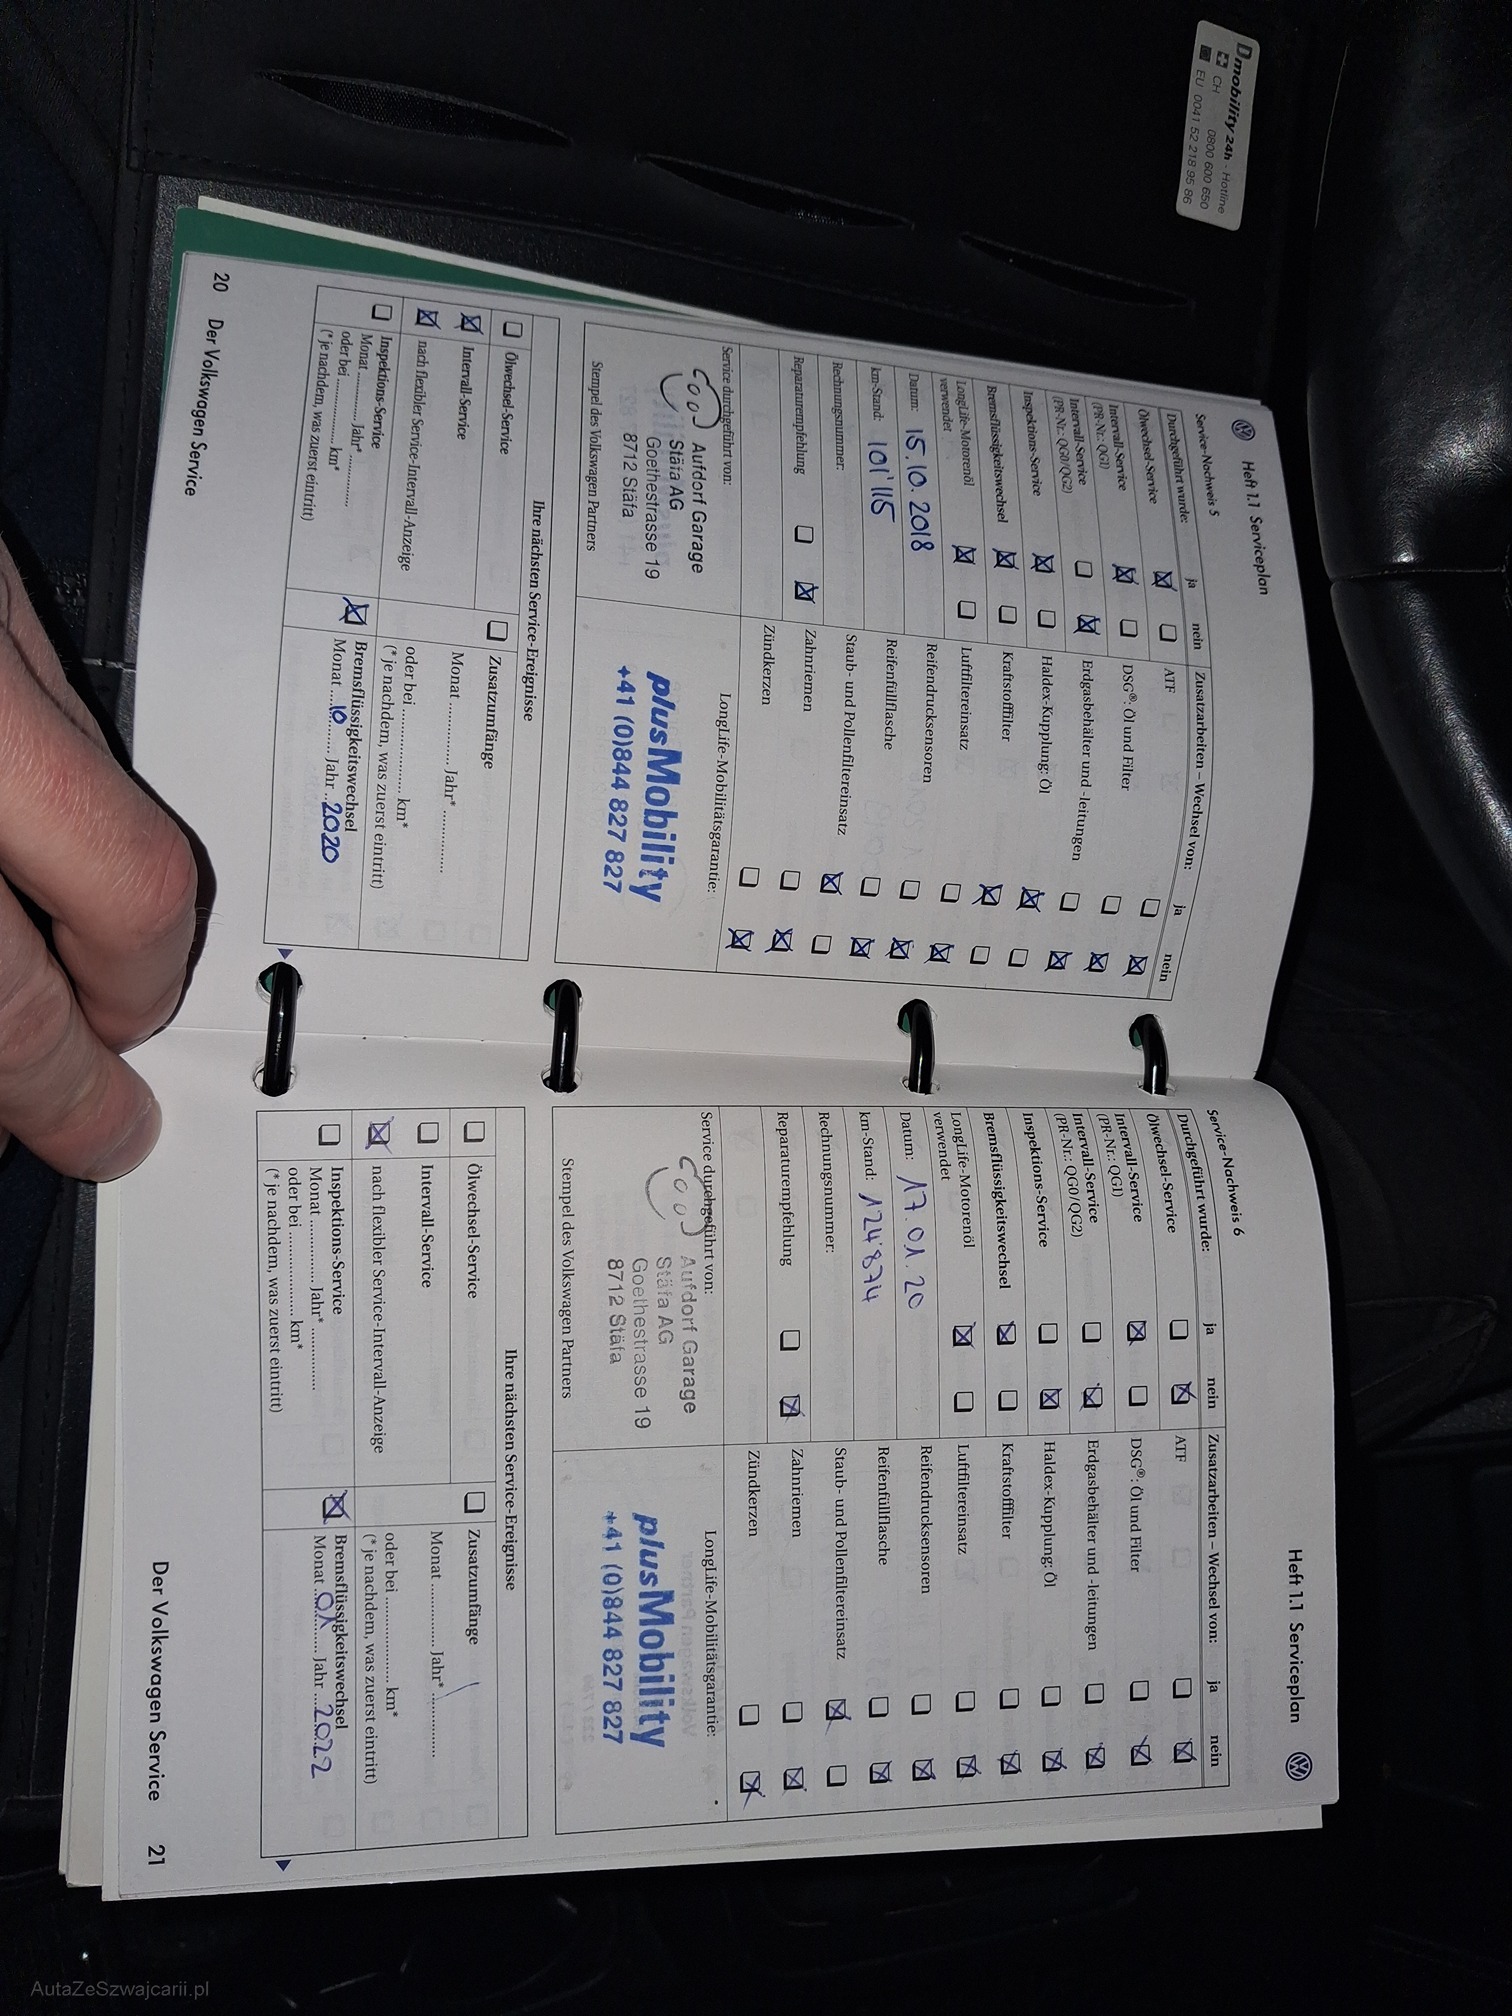 Dmobility 24h - Hotline
CH 0800 600 650
EU 0041 52 218 95 86
Heft 1.1 Serviceplan
Service-Nachweis 5
Durchgeführt wurde: ja nein
Ölwechsel-Service
Intervall-Service
(PR-Nr.: QG1)
Intervall-Service
(PR-Nr.: QG0/QG2)
Inspektions-Service
Bremsflüssigkeitswechsel
LongLife-Motorenöl
verwendet
Datum: 15.10.2018
km-Stand: 101'115
Rechnungsnummer:
Reparaturempfehlung
Service durchgeführt von:
Aufdorf Garage
Stäfa AG
Goethestrasse 19
8712 Stäfa
Stempel des Volkswagen Partners
Zusatzarbeiten – Wechsel von: ja nein
ATF
DSG®: Öl und Filter
Erdgasbehälter und -leitungen
Haldex-Kupplung: Öl
Kraftstofffilter
Luftfiltereinsatz
Reifendrucksensoren
Reifenfüllflasche
Staub- und Pollenfiltereinsatz
Zahnriemen
Zündkerzen
LongLife-Mobilitätsgarantie:
plusMobility
+41 (0)844 827 827
Ihre nächsten Service-Ereignisse
Ölwechsel-Service
Intervall-Service
nach flexibler Service-Intervall-Anzeige
Inspektions-Service
Monat ............ Jahr* ............
oder bei ............ km*
(* je nachdem, was zuerst eintritt)
Zusatzumfänge
Monat ............ Jahr* ............
oder bei ............ km*
(* je nachdem, was zuerst eintritt)
Bremsflüssigkeitswechsel
Monat ....10.... Jahr ..2020
20 Der Volkswagen Service
Heft 1.1 Serviceplan
Service-Nachweis 6
Durchgeführt wurde: ja nein
Ölwechsel-Service
Intervall-Service
(PR-Nr.: QG1)
Intervall-Service
(PR-Nr.: QG0/QG2)
Inspektions-Service
Bremsflüssigkeitswechsel
LongLife-Motorenöl
verwendet
Datum: 17.01.20
km-Stand: 124'874
Rechnungsnummer:
Reparaturempfehlung
Service durchgeführt von:
Aufdorf Garage
Stäfa AG
Goethestrasse 19
8712 Stäfa
Stempel des Volkswagen Partners
Zusatzarbeiten – Wechsel von: ja nein
ATF
DSG®: Öl und Filter
Erdgasbehälter und -leitungen
Haldex-Kupplung: Öl
Kraftstofffilter
Luftfiltereinsatz
Reifendrucksensoren
Reifenfüllflasche
Staub- und Pollenfiltereinsatz
Zahnriemen
Zündkerzen
LongLife-Mobilitätsgarantie:
plusMobility
+41 (0)844 827 827
Ihre nächsten Service-Ereignisse
Ölwechsel-Service
Intervall-Service
nach flexibler Service-Intervall-Anzeige
Inspektions-Service
Monat ............ Jahr* ............
oder bei ............ km*
(* je nachdem, was zuerst eintritt)
Zusatzumfänge
Monat ............ Jahr* ............
oder bei ............ km*
(* je nachdem, was zuerst eintritt)
Bremsflüssigkeitswechsel
Monat ..01.... Jahr ...2022
Der Volkswagen Service 21
AutaZeSzwajcarii.pl